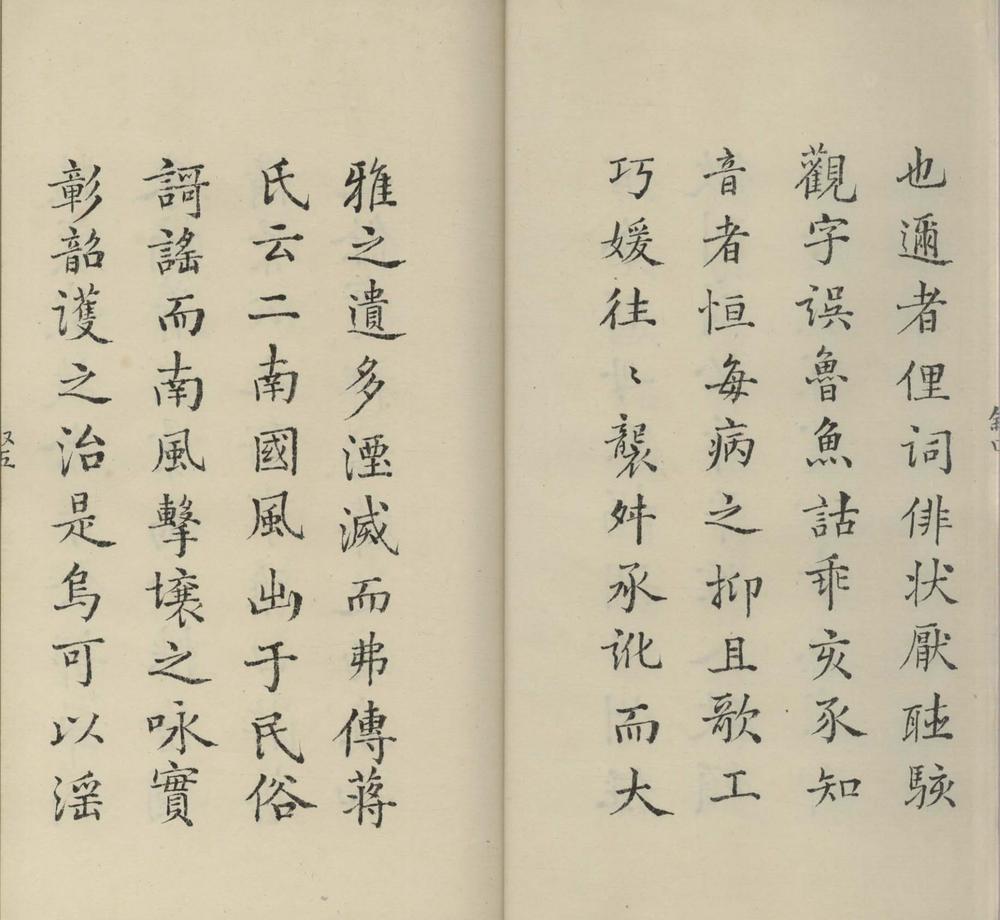 也邇者俚词俳状厭聴駭
觀字误魯魚詁乖亥豕知
音者恒每病之抑且歌工
巧媛往〻襲舛承訛而大
雅之遺多湮滅而弗傳蒋
氏云二南國風出于民俗
謌謠而南風擊壤之咏實
彰韶護之治是烏可以淫